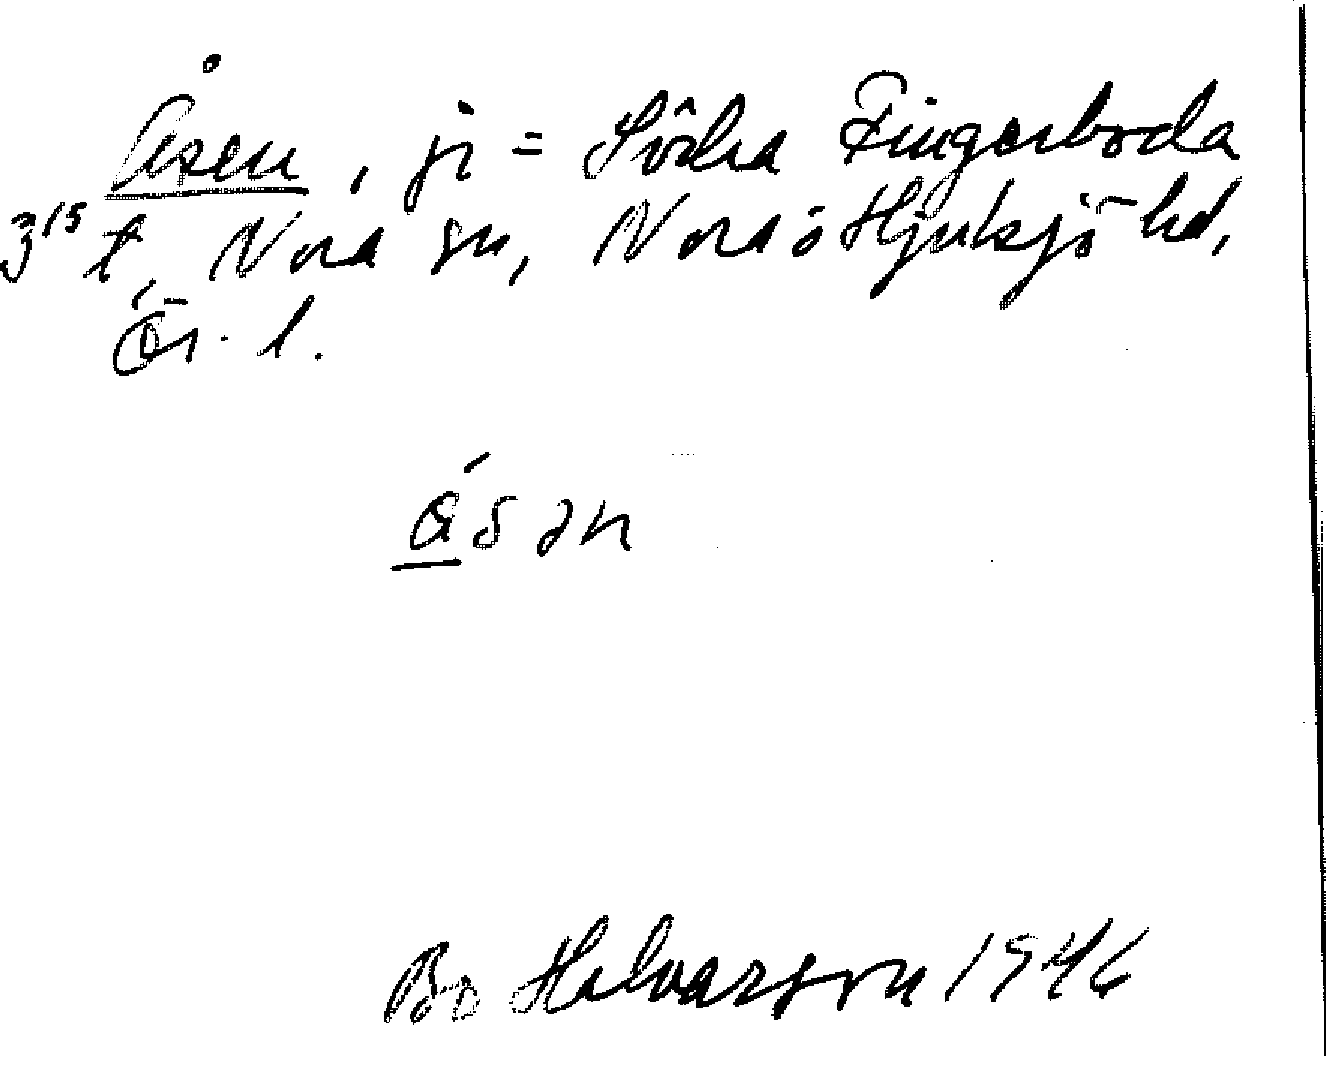 Åsen, jr = Södra Fingerboda
3¹⁵ t. Nora sn, Nora o Hjulsjö hd,
Ör. l.
åsən
Bo Halvarson 1946